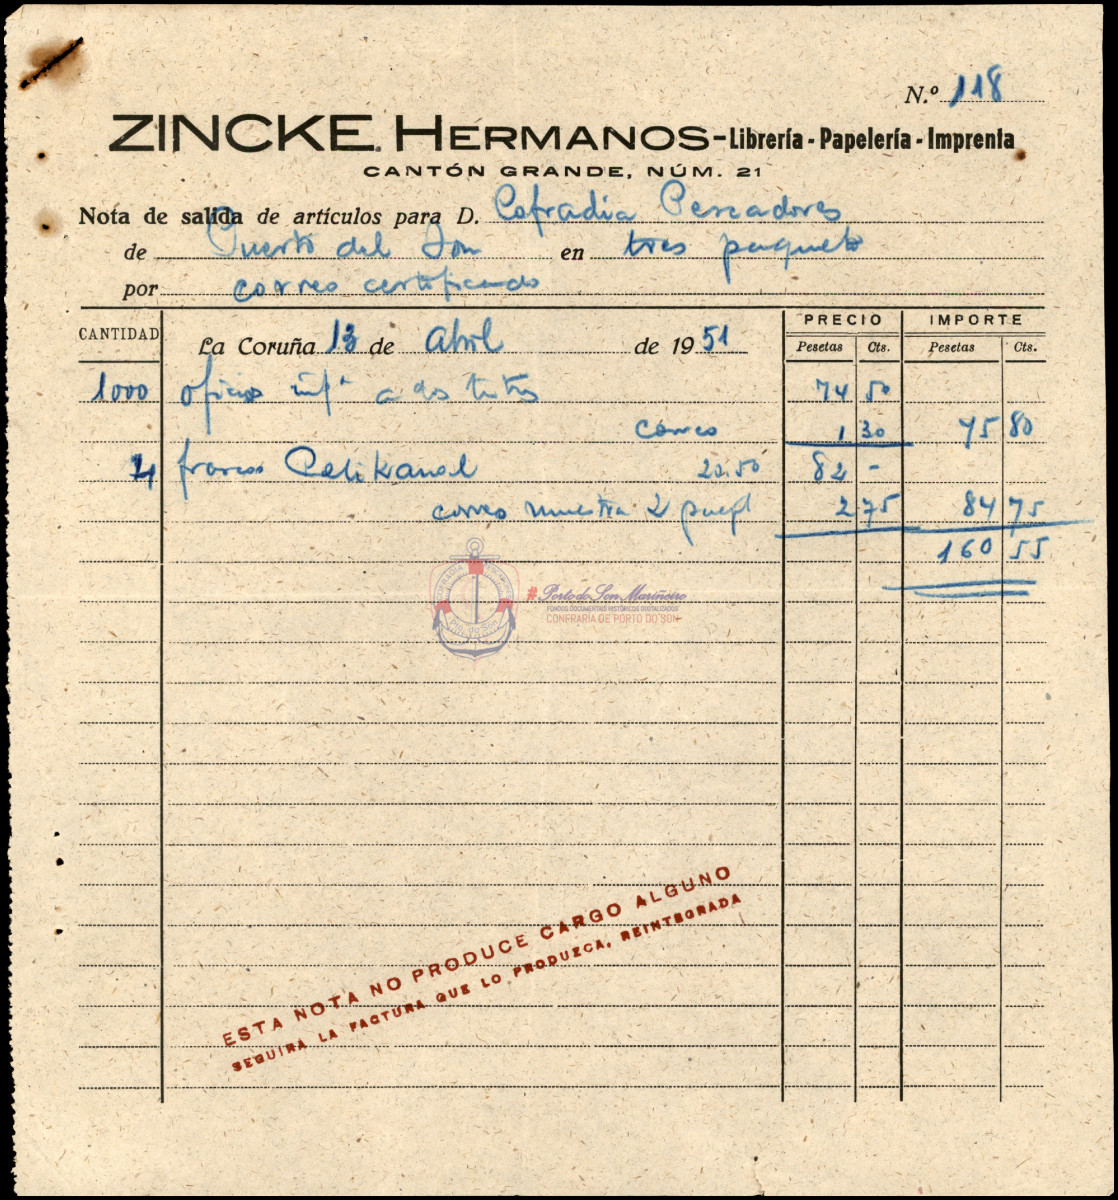 N.º 118
ZINCKE HERMANOS-Librería - Papelería - Imprenta
CANTÓN GRANDE, NÚM. 21
Nota de salida de artículos para D. Cofradia Pescadores
de Puerto del Son en tres paquets
por correo certificado
CANTIDAD La Coruña 13 de Abril de 1951 PRECIO IMPORTE
Pesetas Cts. Pesetas Cts.
1000 oficios a dos tintas 74 50
correo 1 30 75 80
4 frascos Pelikanol 20.50 82 -
correo muestra 2 paq 2 75 84 75
160 55
# Porto do Son Mariñeiro
FONDOS DOCUMENTAIS HISTÓRICOS DIGITALIZADOS
CONFRARÍA DE PORTO DO SON
ESTA NOTA NO PRODUCE CARGO ALGUNO
SEGUIRA LA FACTURA QUE LO PRODUZCA, REINTEGRADA